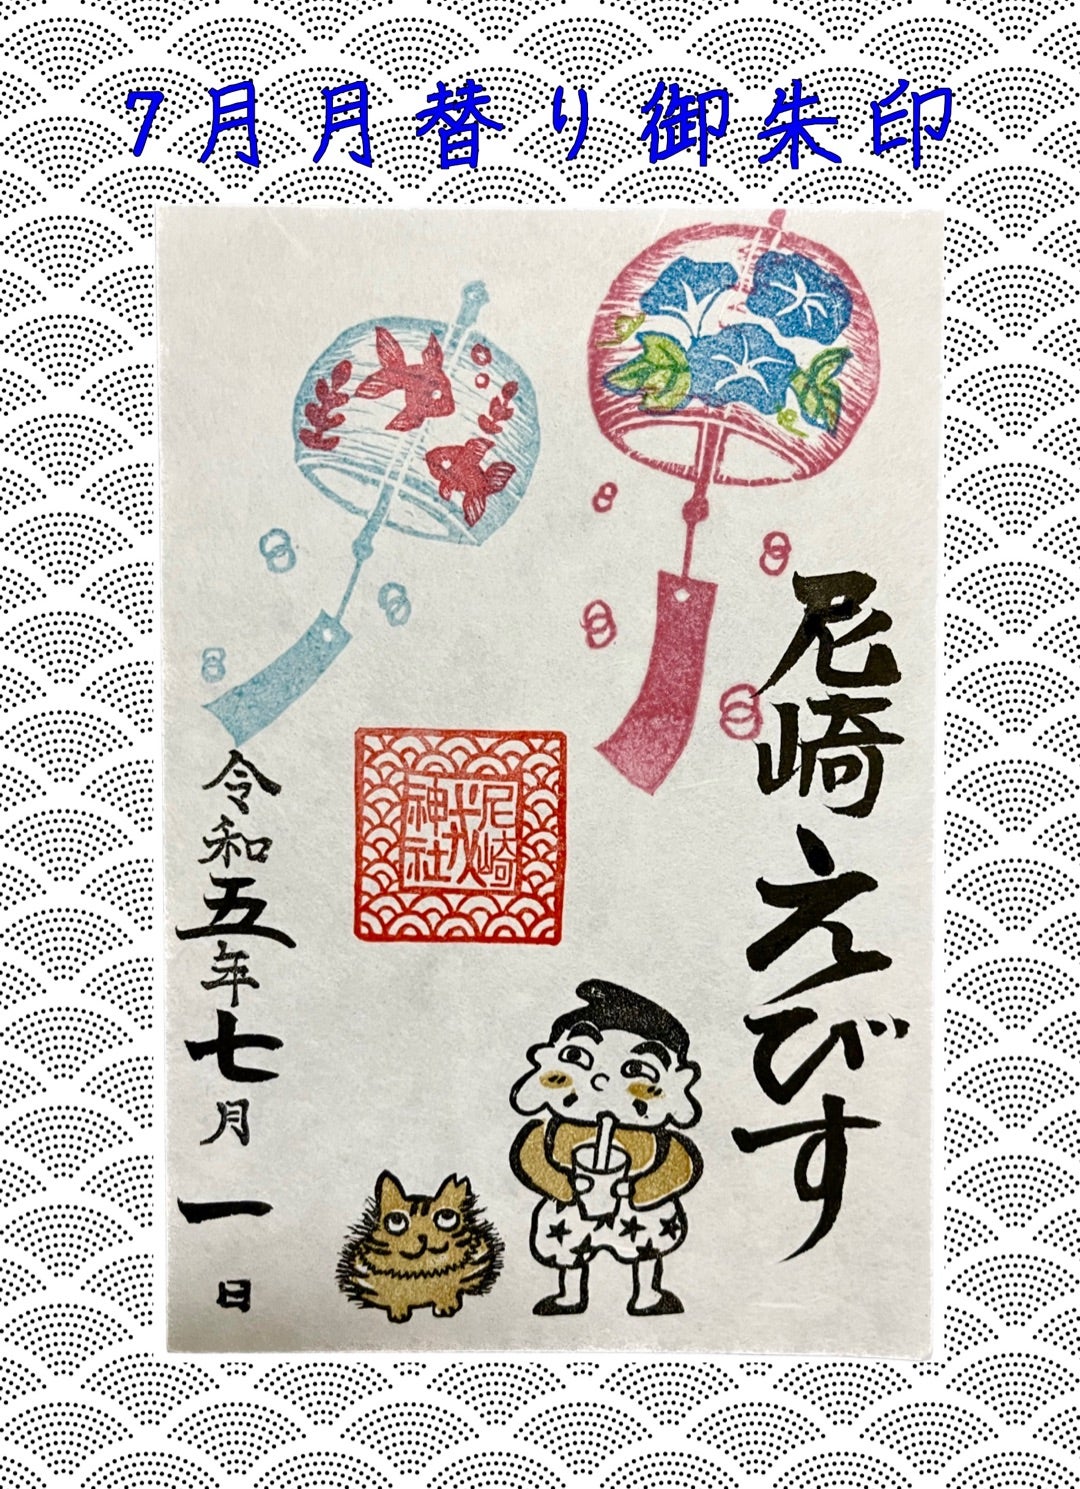 7月月替り御朱印
尼崎えびす
尼崎
戎
神社
令和五年七月一日